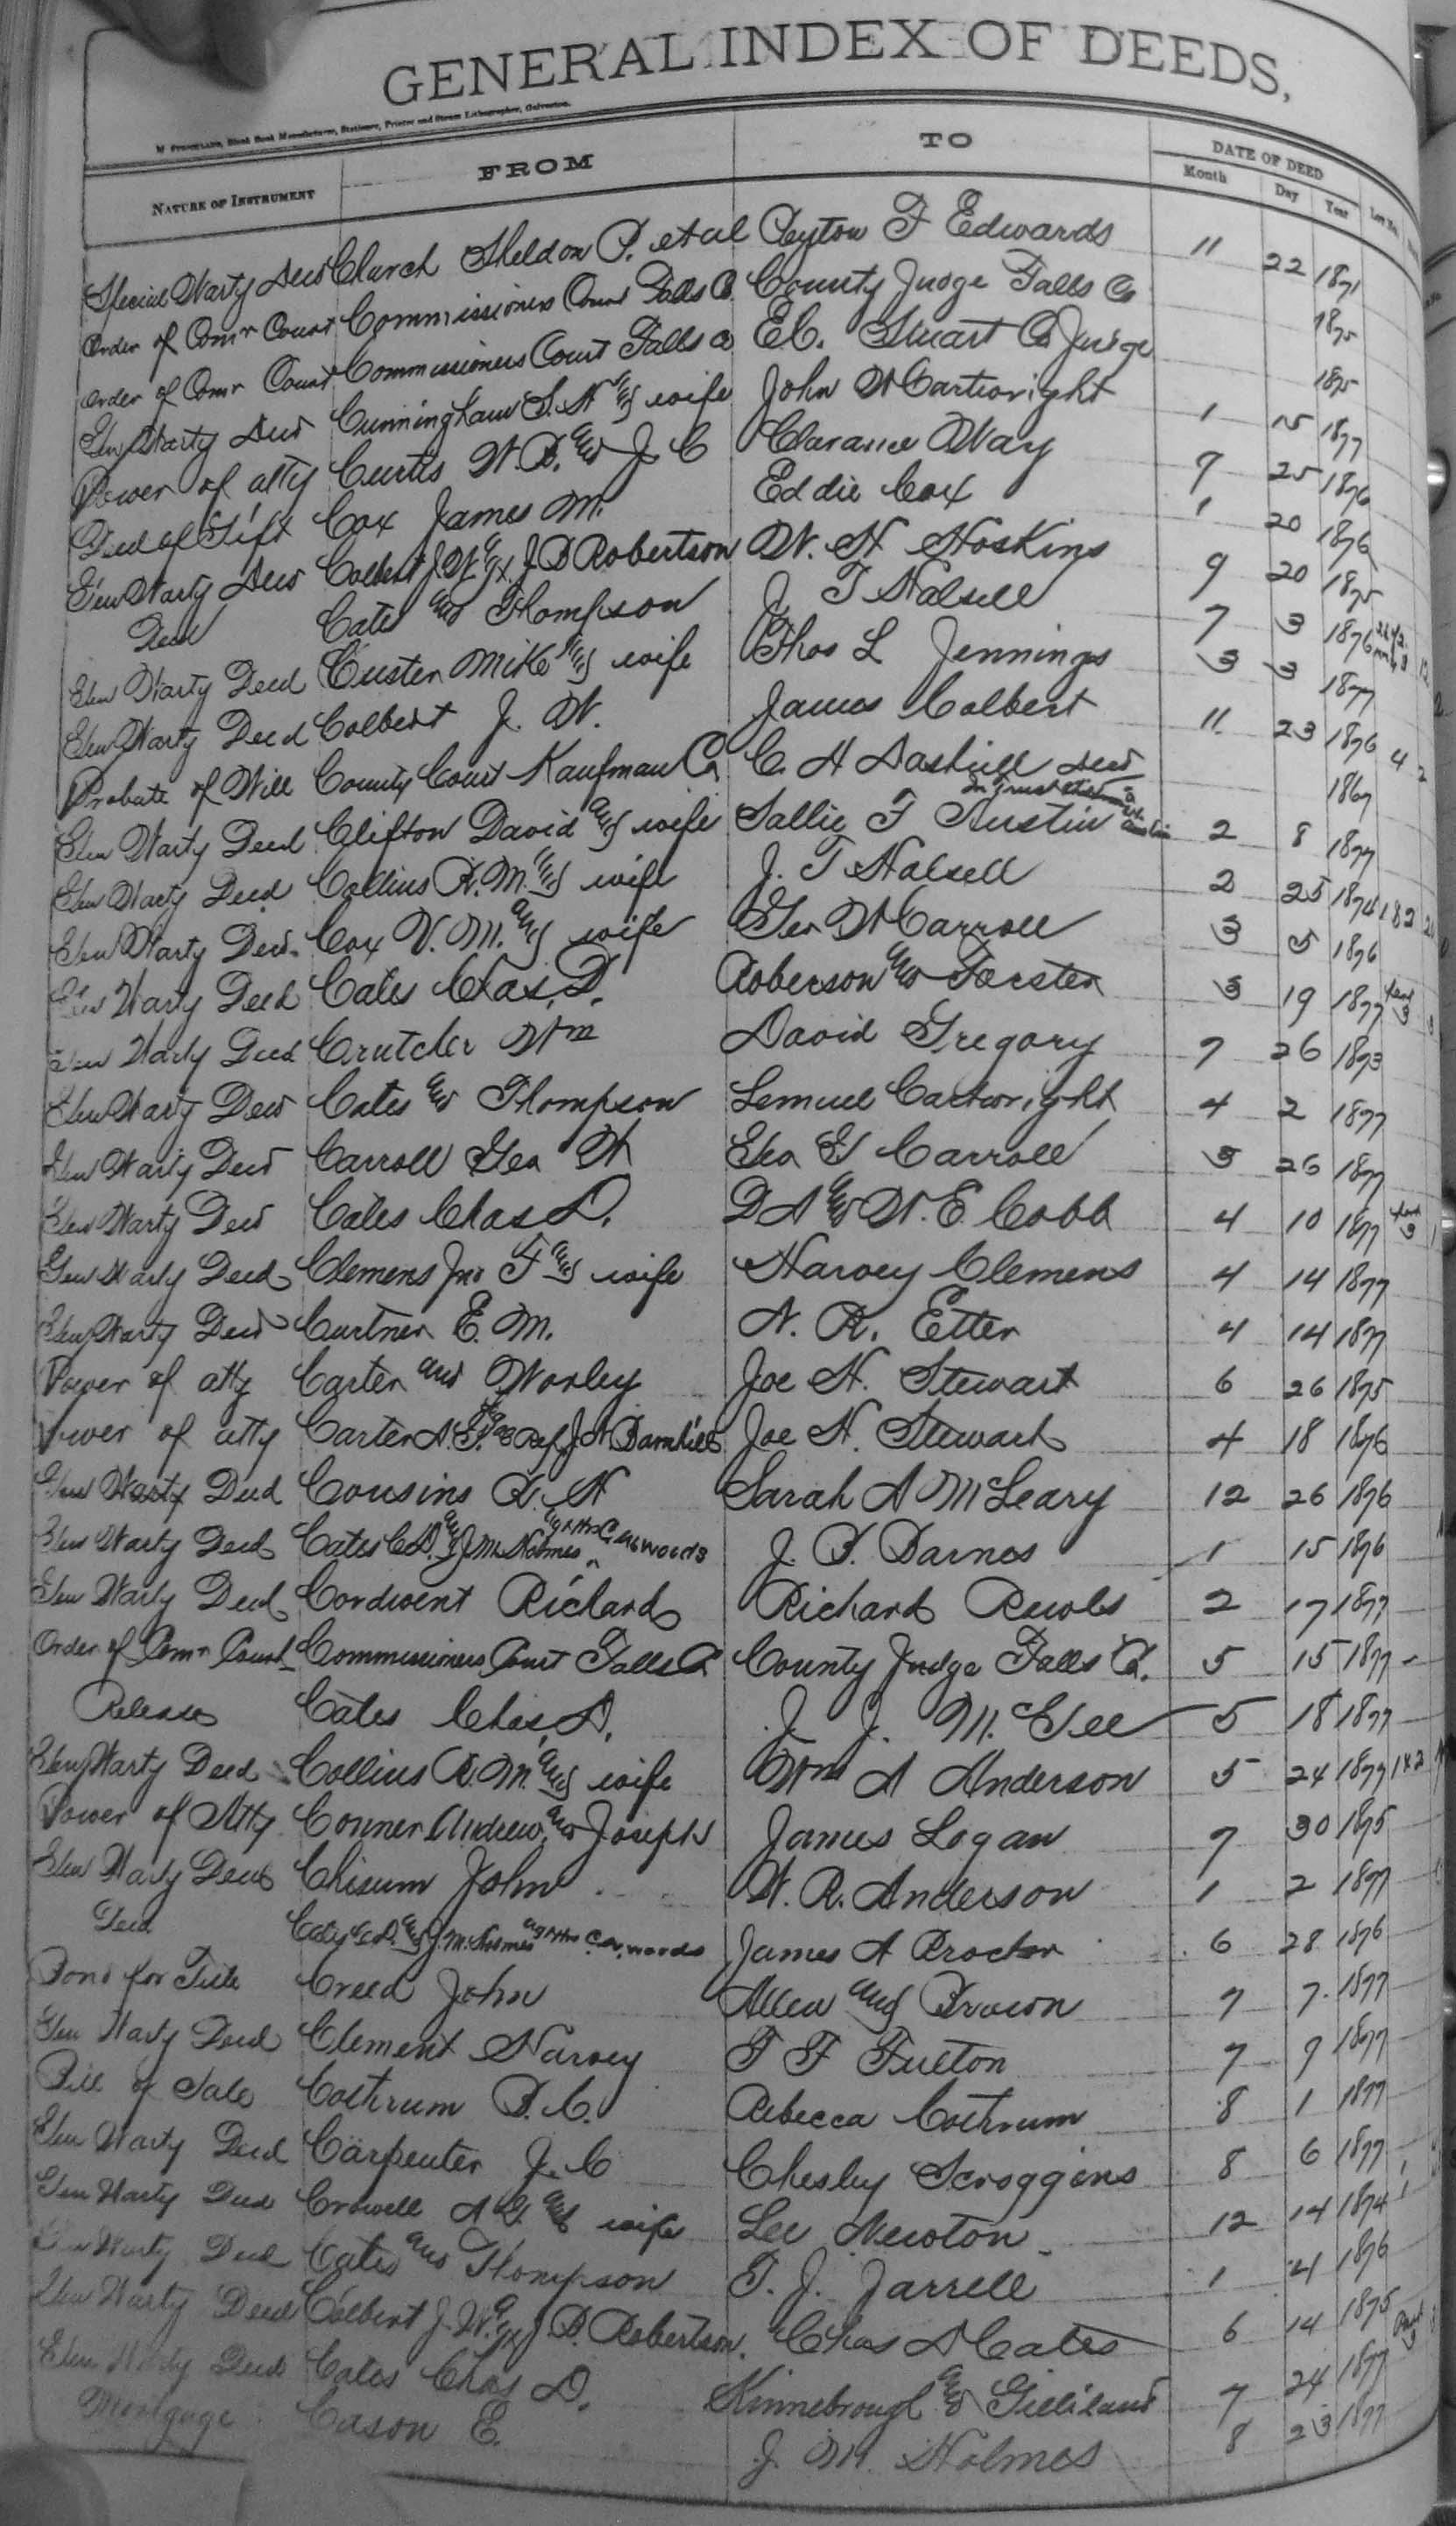 GENERAL INDEX OF DEEDS,
Blank Book Manufacturer, Stationer, Printer and Steam Lithographer, Galveston.
NATURE OF INSTRUMENT FROM TO DATE OF DEED
Month Day Year
Special Warty Deed Church Sheldon P. et al Peyton F Edwards 11 22 1871
Order of Comr Court Commissioners Court Falls Co. County Judge Falls Co 1875
Order of Comr Court Commissioners Court Falls Co E.C. Stuart Co Judge 1875
Gen Warty Deed Cunningham S. H and wife John W Cartwright 1 15 1877
Power of atty Curtis W. B. and J. C Clarance Way 9 25 1876
Deed of Gift Cox James M. Eddie Cox 1 20 1876
Gen Warty Deed Colbert J. W. Ex. J B Robertson W. H Hoskins 9 20 1875
Deed Cates and Thompson J T Halsell 7 3 1876
Gen Warty Deed Custer Mike and wife Thos L Jennings 3 3 1877
Gen Warty Deed Colbert J. W. James Colbert 11 23 1876 4
Probate of Will County Court Kaufman Co C. H Dashiell Deed 1867
Gen Warty Deed Clifton David and wife Sallie F Austin In Trust 2 8 1877
Gen Warty Deed Collins R. M. and wife J. T Halsell 2 25 1874 182
Gen Warty Deed Cox V. M. and wife Geo W Carroll 3 5 1876
Gen Warty Deed Cates Chas. D. Roberson and Forster 3 19 1877
Gen Warty Deed Crutcher Wm David Gregory 7 26 1873
Gen Warty Deed Cates and Thompson Lemuel Cartwright 4 2 1877
Gen Warty Deed Carroll Geo W Geo E Carroll 3 26 1877
Gen Warty Deed Cates Chas D. D A and W. E. Cobb 4 10 1877
Gen Warty Deed Clemens Jno F and wife Harvey Clemens 4 14 1877
Gen Warty Deed Curtner E. M. N. R. Etter 4 14 1877
Power of atty Carter and Worley Joe H. Stewart 6 26 1875
Power of atty Carter Joe H. Stewart 4 18 1876
Gen Warty Deed Cousins R. H Sarah A McLeary 12 26 1876
Gen Warty Deed Cates C. D. and J M Holmes agts C A Woods J. B. Barnes 1 15 1876
Gen Warty Deed Cordwent Richard Richard Rewls 2 17 1877
Order of Comr Court Commissioners Court Falls Co County Judge Falls Co. 5 15 1877
Release Cates Chas, D. J. J. McGee 5 18 1877
Gen Warty Deed Collins R. M. and wife Wm A Anderson 5 24 1877 142
Power of Atty Conner Andrew and Joseph James Logan 7 30 1875
Gen Warty Deed Chisum John W. R. Anderson 1 2 1877
Deed Cates C. D. and J. M. Holmes agts C. A. Woods James A Proctor 6 28 1876
Bond for Title Creed John Allen and Brown 7 7 1877
Gen Warty Deed Clement Harvey T F Fulton 7 9 1877
Bill of Sale Cothrum B. C. Rebecca Cothrum 8 1 1877
Gen Warty Deed Carpenter J. C Chesley Scroggins 8 6 1877
Gen Warty Deed Crowell and wife Lee Newton 12 14 1874
Gen Warty Deed Cates and Thompson T. J. Jarrell 1 4 1876
Gen Warty Deed Colbert J. W. Ex J. B. Robertson. Chas D Cates 6 14 1875
Gen Warty Deed Cates Chas D. Kinnebrough and Gilliland 7 24 1877
Mortgage Cason E. J. M. Holmes 8 23 1877